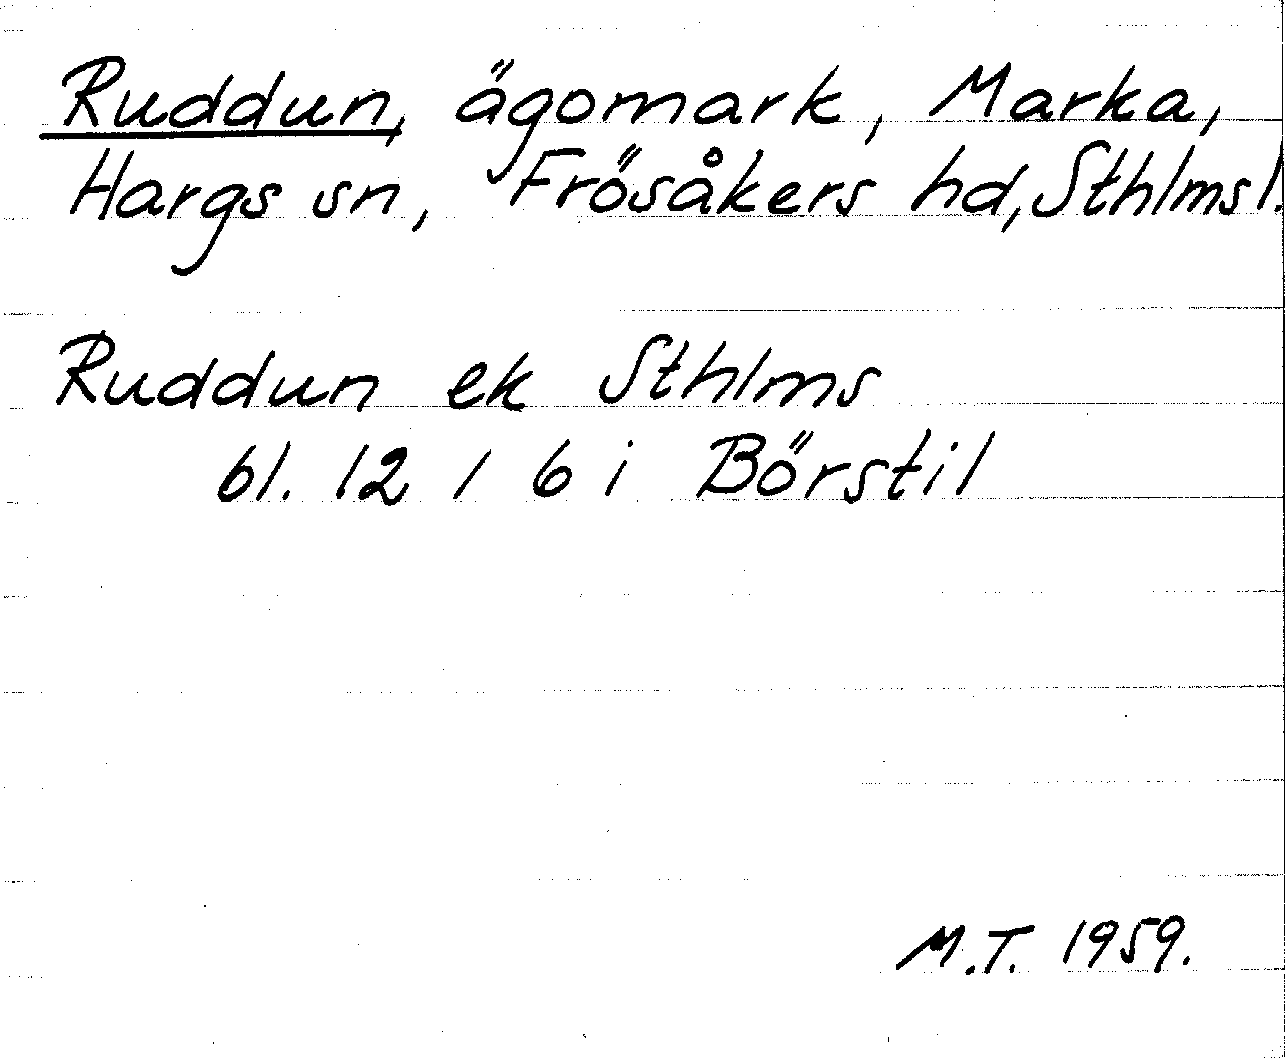 Ruddun, ägomark, Marka,
Hargs sn, Frösåkers hd, Sthlms l.
Ruddun ek Sthlms
bl. 12 / 6 i Börstil
M.T. 1959.